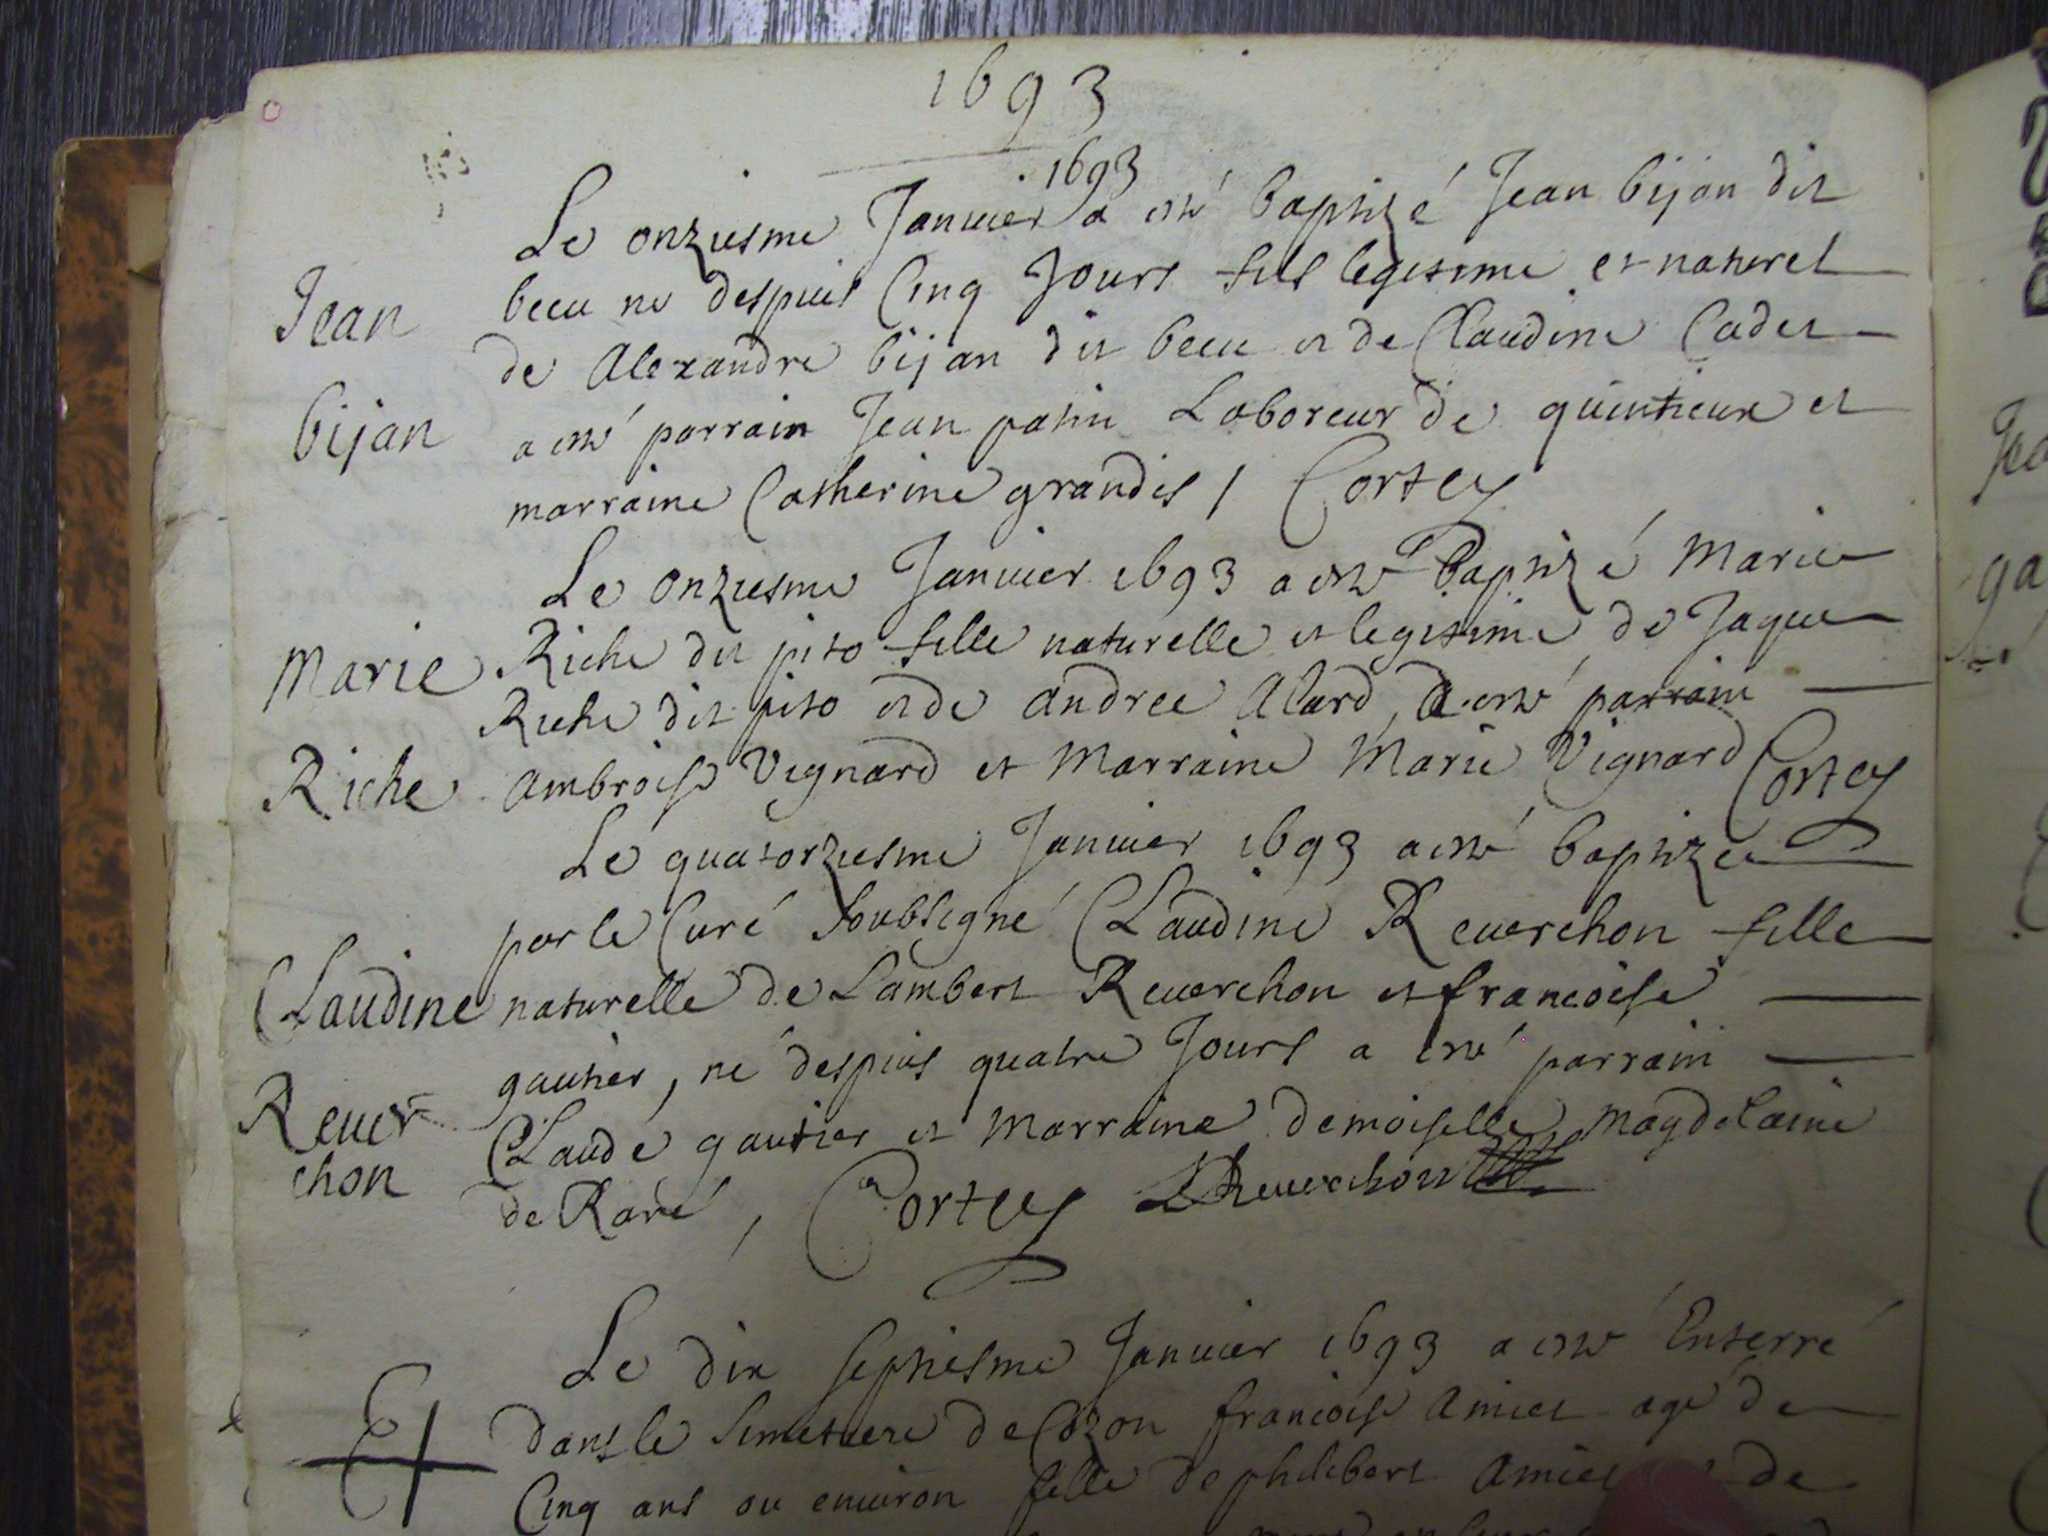 1693
1693
Le onziesme Januier a esté baptizé Jean bijan dit
becu né despuis Cinq Jours fils legitime et naturel
Jean
de Alexandre bijan dit becu et de Claudine Cadet
bijan
a esté parrain Jean patin Laboreur de quintieux et
marraine Catherine grandis / Cortey
Le onziesme Januier 1693 a esté Baptizé Marie
Marie
Riche dit pito fille naturelle et legitime de Jaque
Riche dit pito et de andree Alard, a esté parrain
Riche
ambroise Vignard et Marraine Marie Vignard Cortey
Le quatorziesme Januier 1693 a esté baptizee
par le Curé soubsigné Claudine Reuerchon fille
Claudine
naturelle de Lambert Reuerchon et francoise
gautier, né despuis quatre Jours a esté parrain
Reuer
chon
Claude gautier et Marraine demoiselle Magdelaine
de Raré, Cortey LReuerchon
Le dix septiesme Januier 1693 a esté Enterré
dans le Simetiere de Cozon francoise Amiet agé de
Cinq ans ou enuiron fille de philibert Amiet de